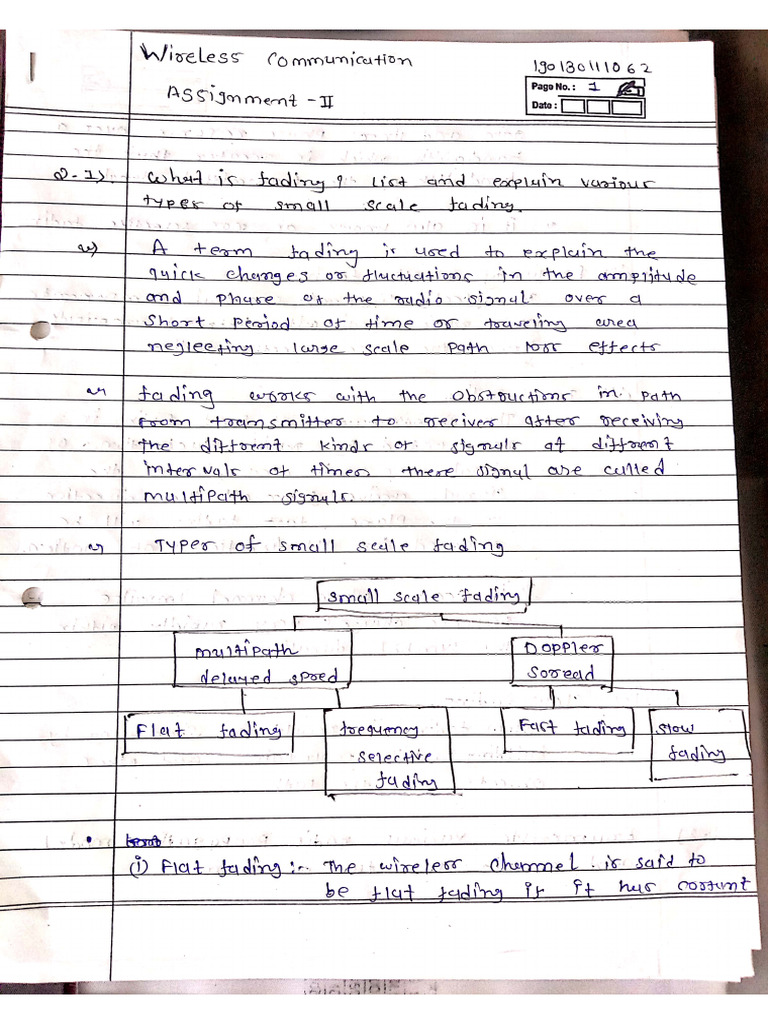 Wireless Communication
190130111062
Assignment - II
Page No.: 1
Date:
Q-1). What is fading? List and explain various
types of small scale fading.
A term fading is used to explain the
quick changes or fluctuations in the amplitude
and phase of the radio signal over a
short period of time or traveling area
neglecting large scale path loss effects
fading works with the obstructions in path
from transmitter to reciver after receiving
the different kinds of signals at different
intervals of times these signal are called
multipath signals.
Types of small scale fading
Small scale fading
Multipath
delayed spred
Doppler
Soread
Flat fading
frequency
selective
fading
Fast fading
Slow
fading
(i) Flat fading :- The wireless channel is said to
be flat fading if it has